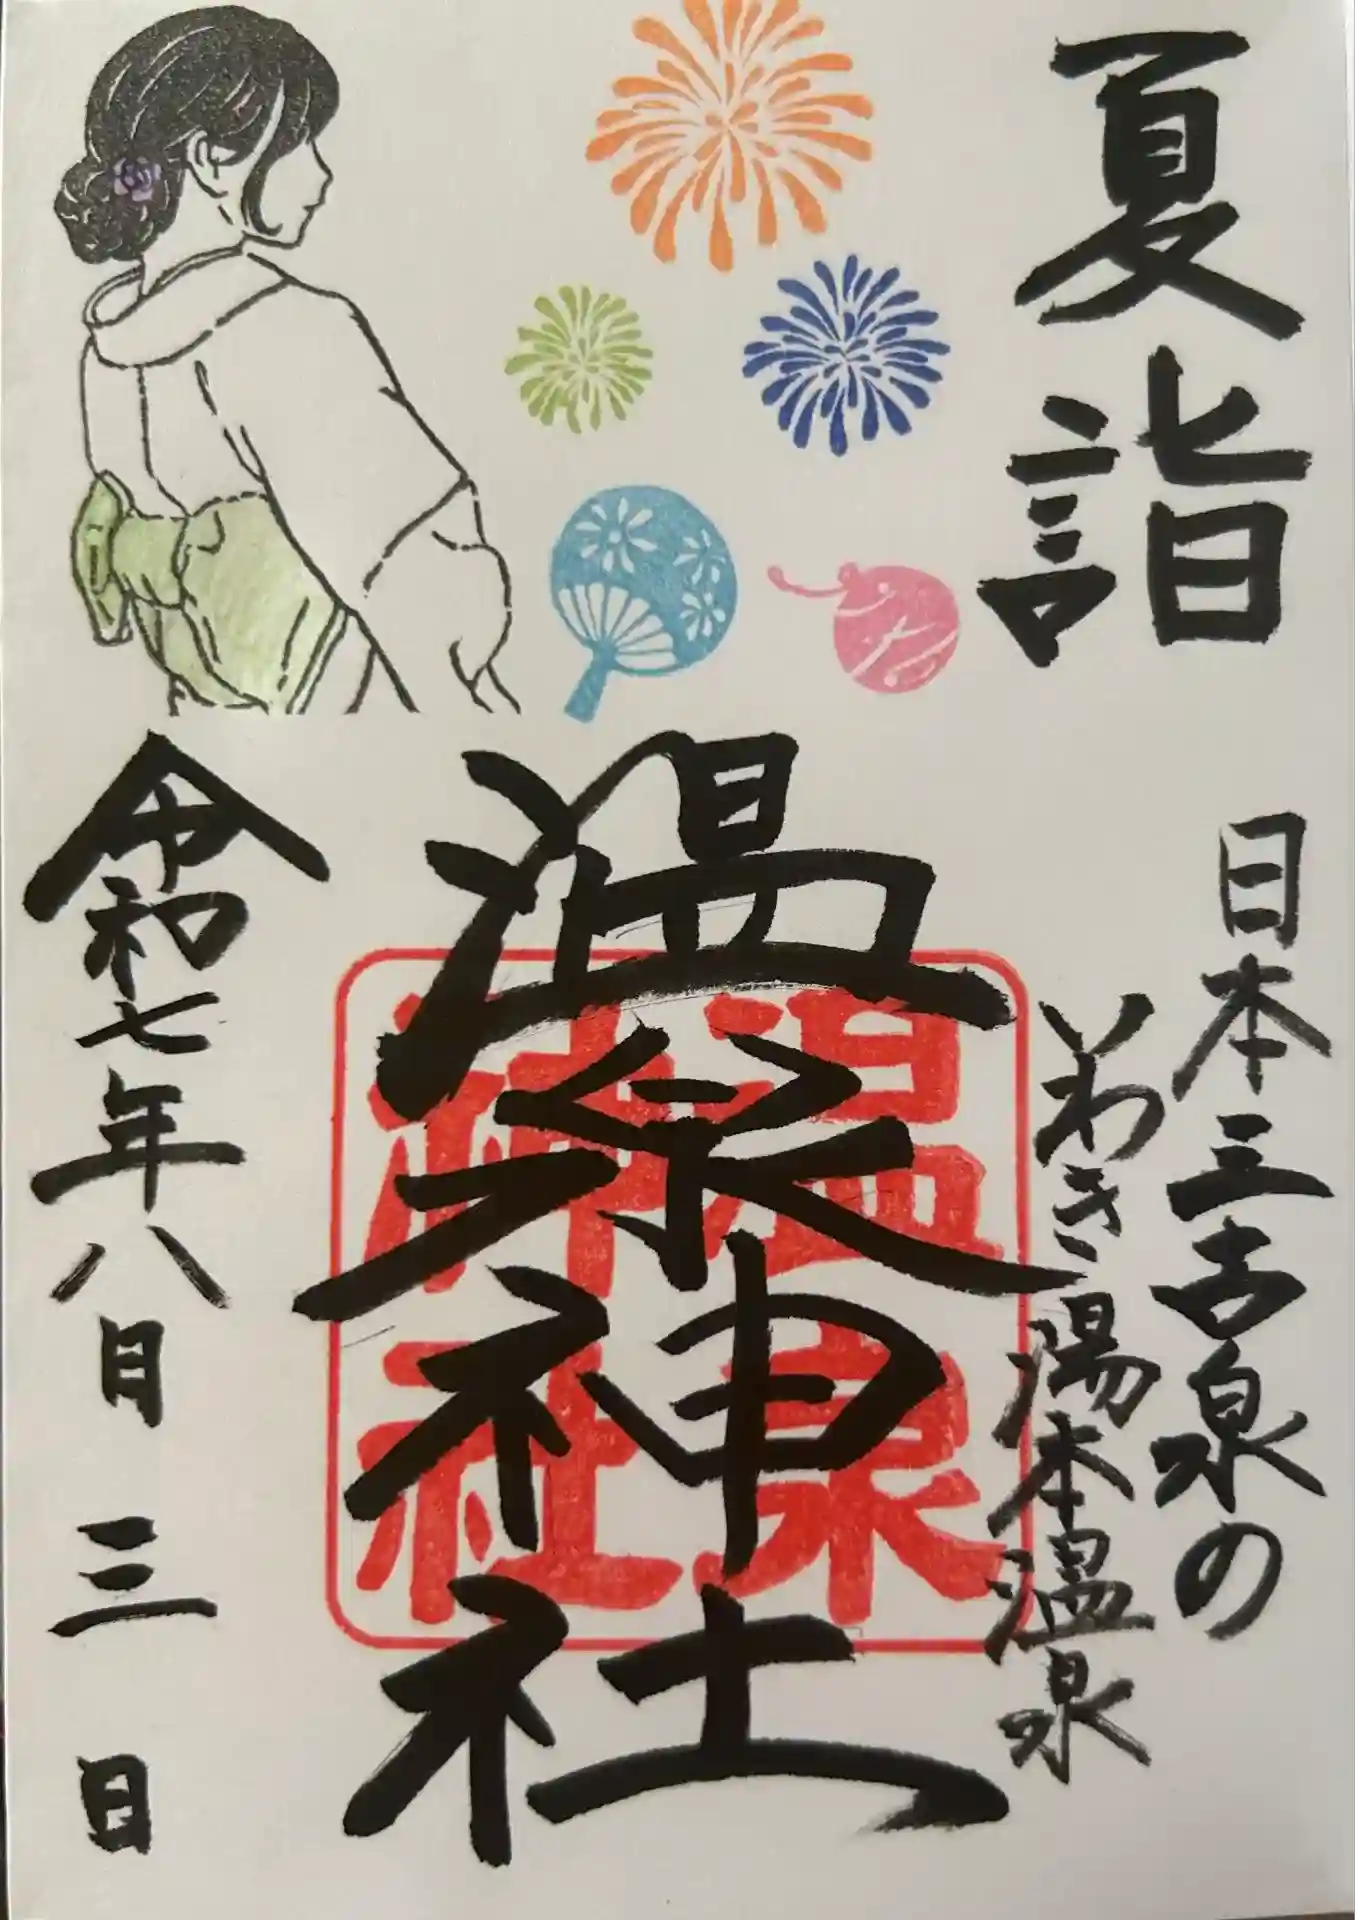 夏詣
日本三古泉の
いわき湯本温泉
温泉神社
温泉
神社
令和七年八月三日